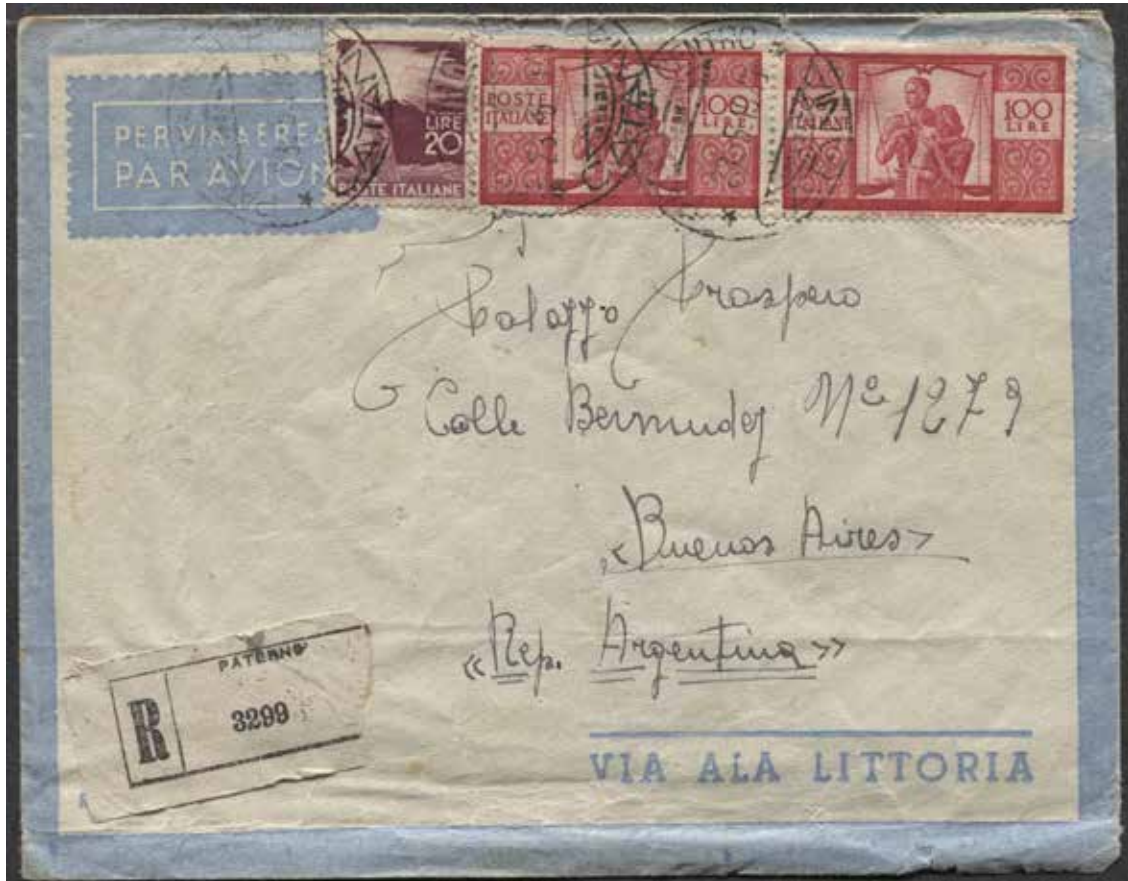 PER VIA AEREA
PAR AVION
LIRE
20
POSTE ITALIANE
POSTE
ITALIANE
100
LIRE
POSTE
ITALIANE
100
LIRE
CATANIA
Palazzo Prospero
Calle Bermudez Nº 1279
«Buenos Aires»
«Rep. Argentina»
PATERNO
R
3299
VIA ALA LITTORIA